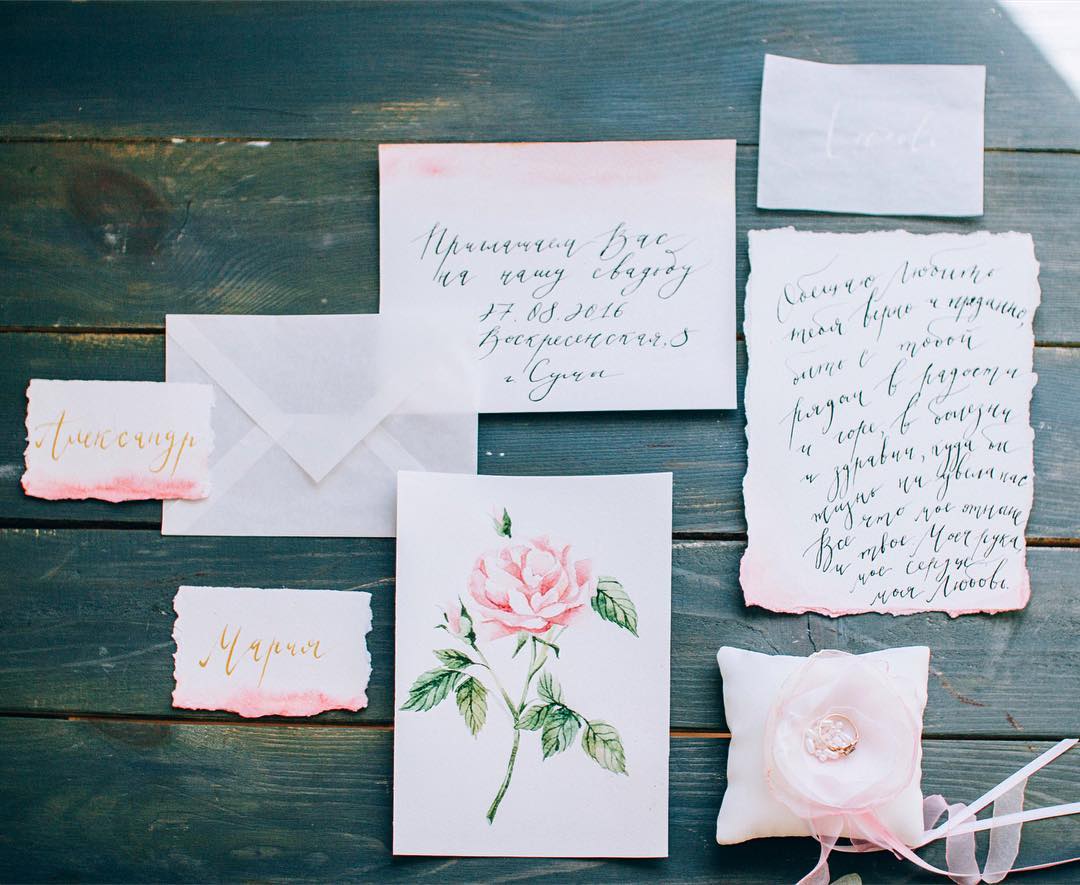 Приглашаем Вас
на нашу свадьбу
27.08.2016
Воскресенская, 5
г Сумы
Обещаю Любить
тебя верно и преданно,
быть с тобой
рядом в радости
и горе, в болезни
и здравии, куда бы
жизнь ни увела нас
Все что мое отныне
и твое. Моя рука,
мое сердце
моя Любовь.
Александр
Мария